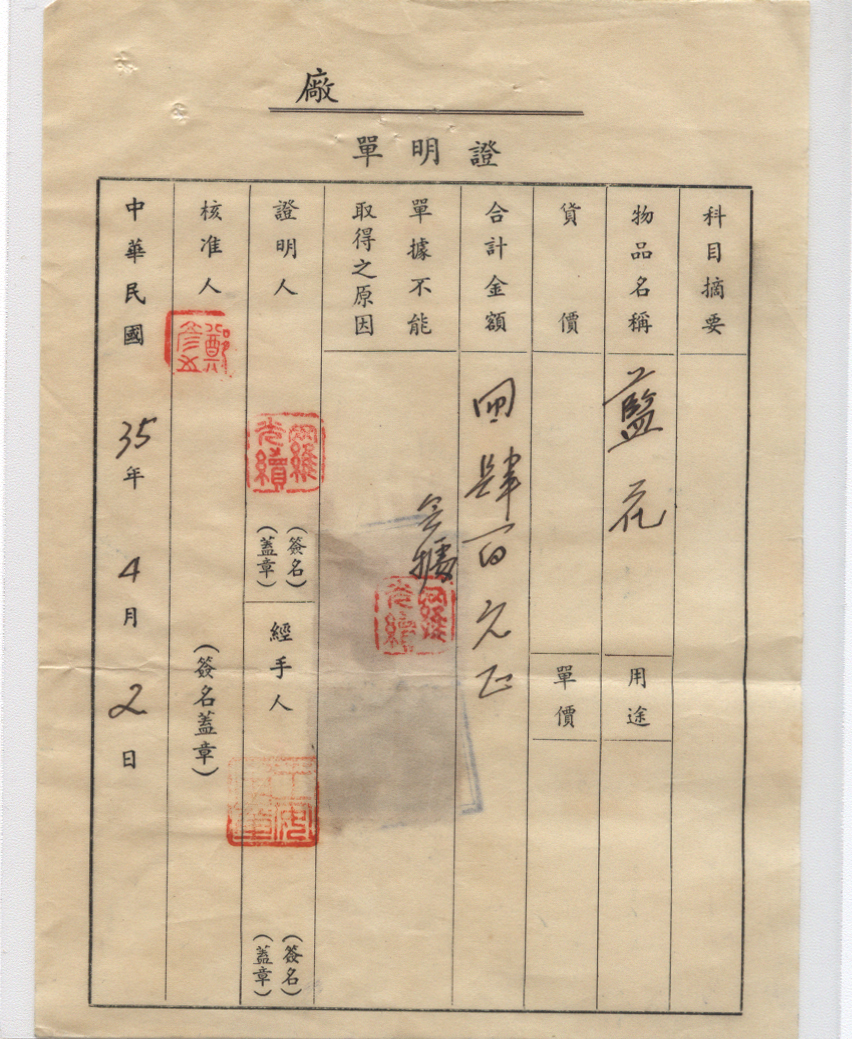 廠
證明單
科目摘要
物品名稱
藍花
用途
貨價
單價
合計金額
肆百元正
單據不能
取得之原因
證明人
(簽名
蓋章)
經手人
(簽名
蓋章)
核准人
(簽名蓋章)
中華民國35年4月2日